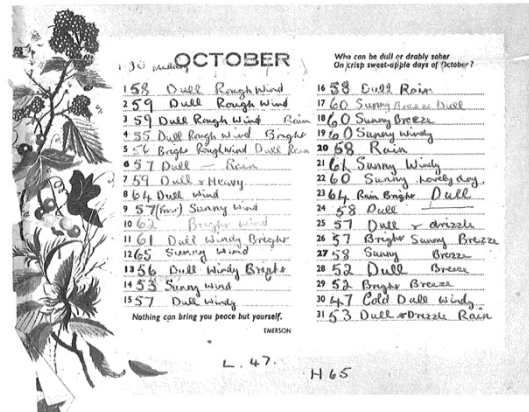 OCTOBER
1 58 Dull Rough Wind
2 59 Dull Rough Wind
3 59 Dull Rough Wind Rain
4 55 Dull Rough Wind Bright
5 56 Bright Rough Wind Dull Rain
6 57 Dull — Rain
7 59 Dull & Heavy
8 64 Dull Wind
9 57 Sunny Wind
10 62 Bright Wind
11 61 Dull Windy Bright
12 65 Sunny Wind
13 56 Dull Windy Bright
14 53 Sunny Wind
15 57 Dull Windy
Nothing can bring you peace but yourself.
EMERSON
Who can be dull or drably sober
On crisp sweet-apple days of October?
16 58 Dull Rain
17 60 Sunny Breeze Dull
18 60 Sunny Breeze
19 60 Sunny Windy
20 58 Rain
21 61 Sunny Windy
22 60 Sunny Lovely day
23 64 Rain Bright Dull
24 58 Dull
25 57 Dull & drizzle
26 57 Bright Sunny Breeze
27 58 Sunny Breeze
28 52 Dull Breeze
29 52 Bright Breeze
30 47 Cold Dull Windy
31 53 Dull & Drizzle Rain
L. 47.
H 65